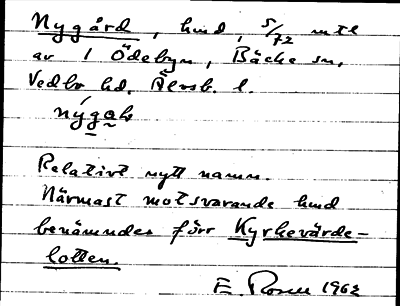 Nygård, hmd, 5/72 mtl
av 1 Ödebyn, Bäcke sn,
Vedbo hd, Älvsb. l.
nýga̰
Relativt nytt namn.
Närmast motsvarande hmd
benämndes förr Kyrkevärde-
lotten.
E. Rosell 1962